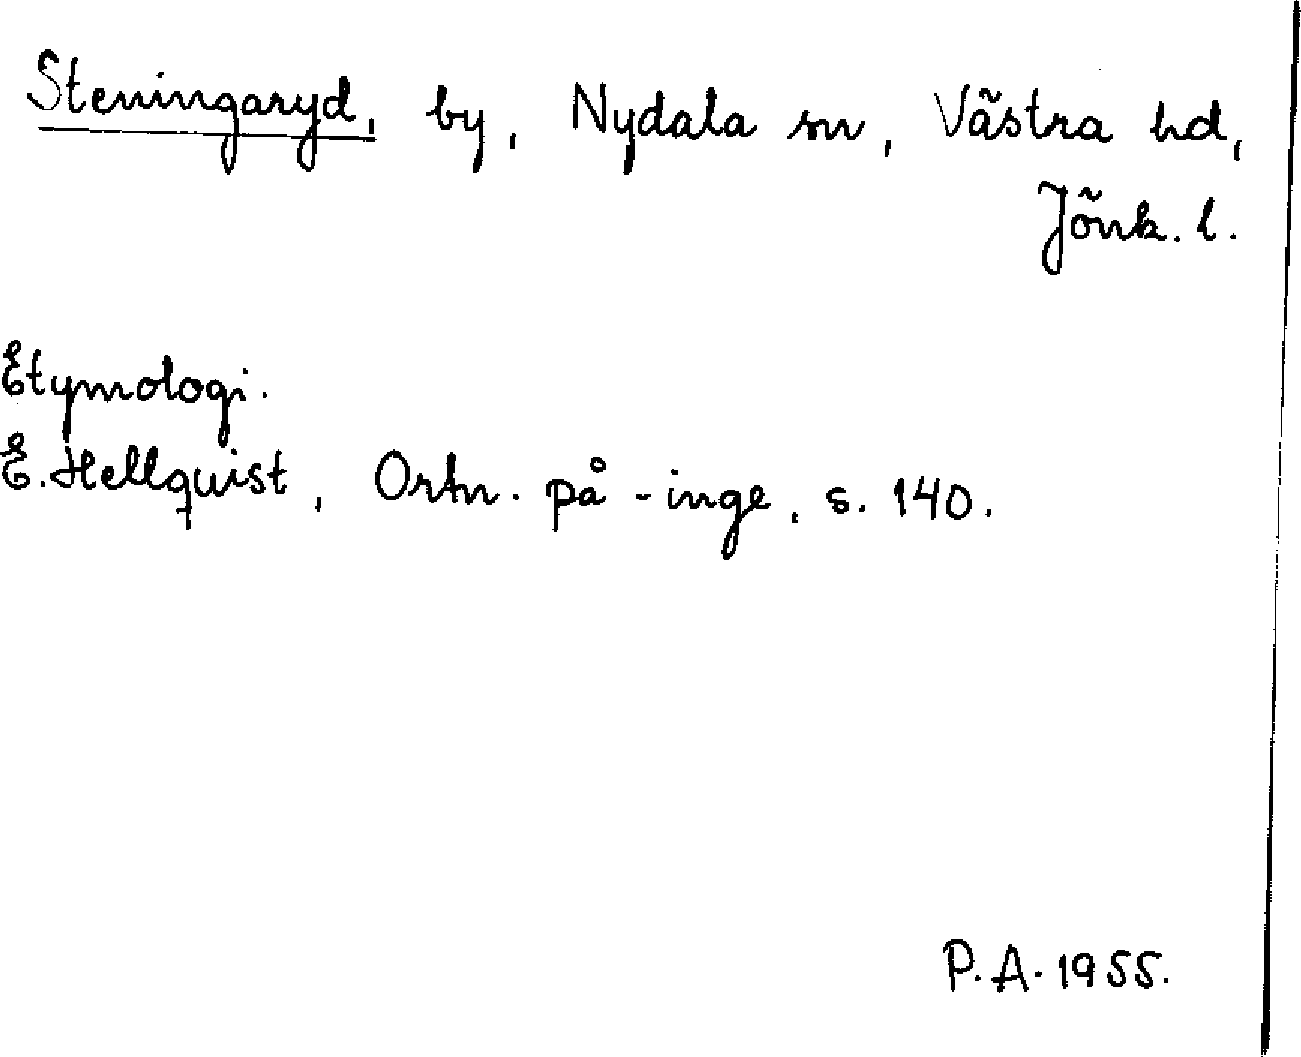 Steningaryd, by, Nydala sn, Västra hd,
Jönk. l.
Etymologi.
E. Hellquist, Ortn. på -inge, s. 140.
P.A. 1955.